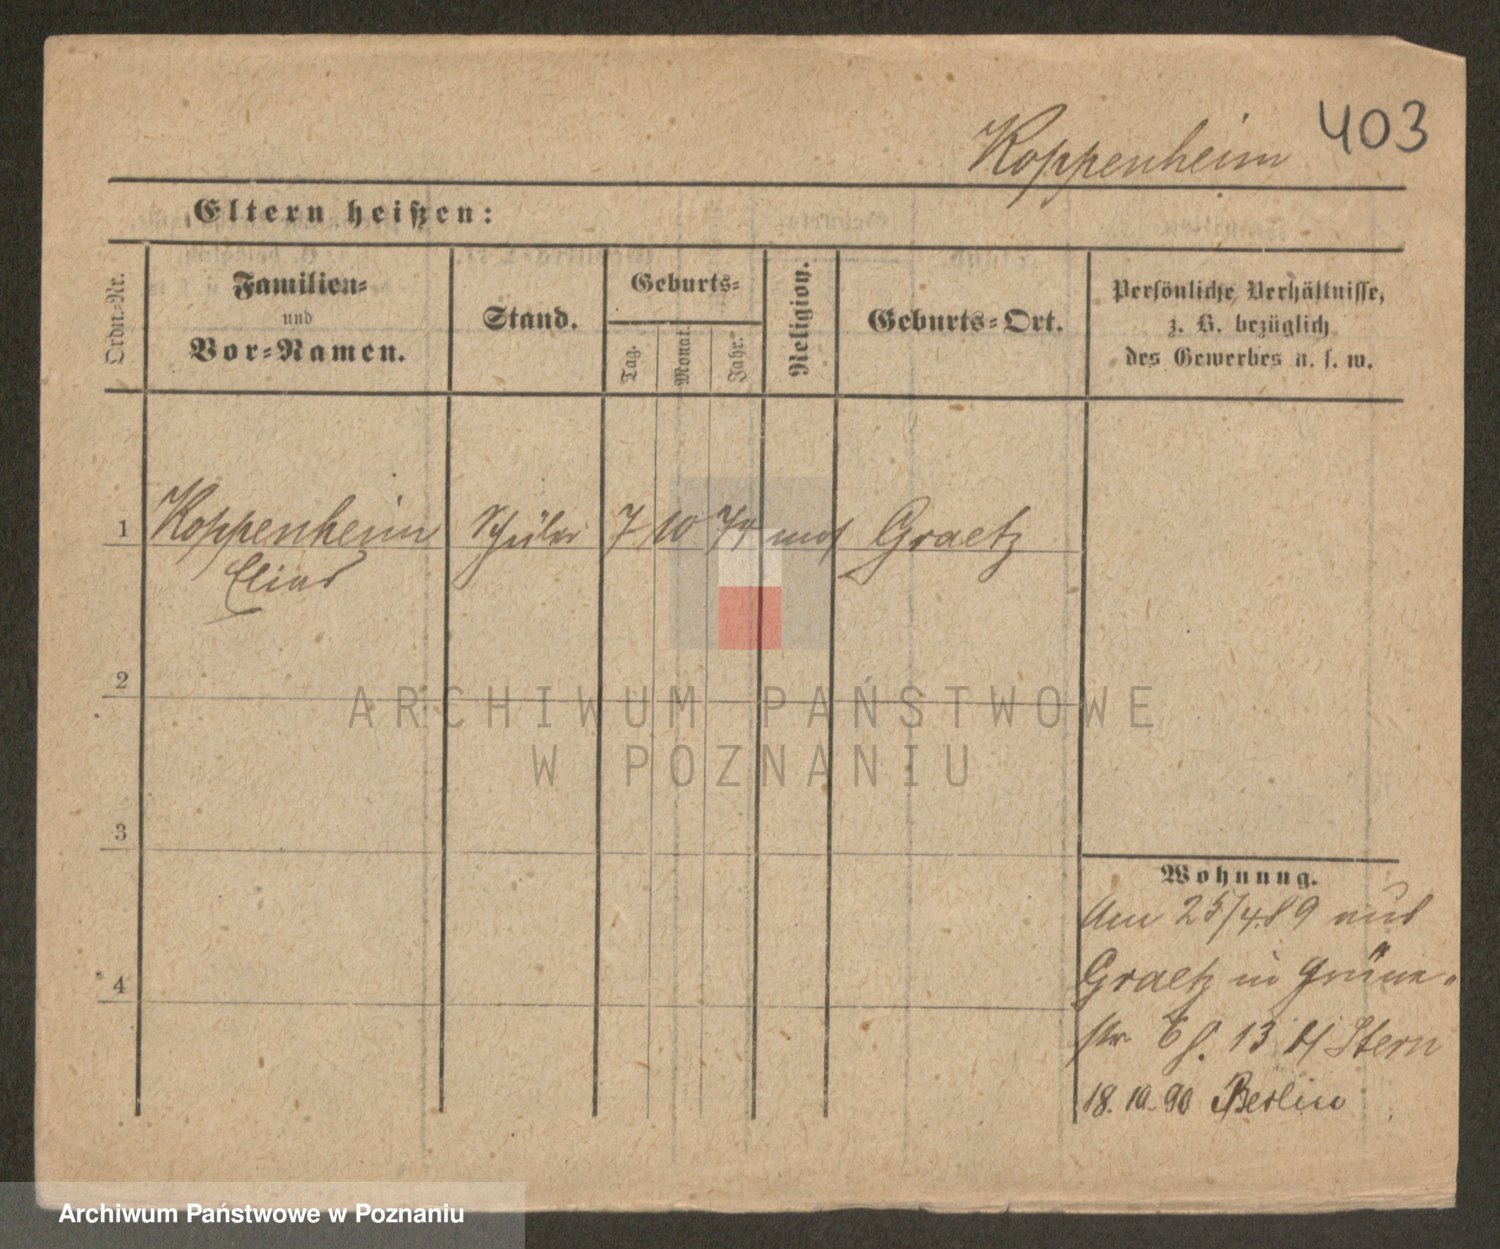 Koppenheim 403
Eltern heißen:
Ordn.-Nr.
Familien-
und
Vor-Namen.
Stand.
Geburts-
Tag.
Monat.
Jahr.
Religion.
Geburts-Ort.
Persönliche Verhältnisse,
z. B. bezüglich
des Gewerbes u. s. w.
1 Koppenheim Schüler 7 10 mos Graetz
Elias
2
3
4
Wohnung.
Am 25/4.89 aus
Graetz in Grüne-
str. 13 b/ Stern
18.10.90 Berlin
ARCHIWUM PAŃSTWOWE
W POZNANIU
Archiwum Państwowe w Poznaniu